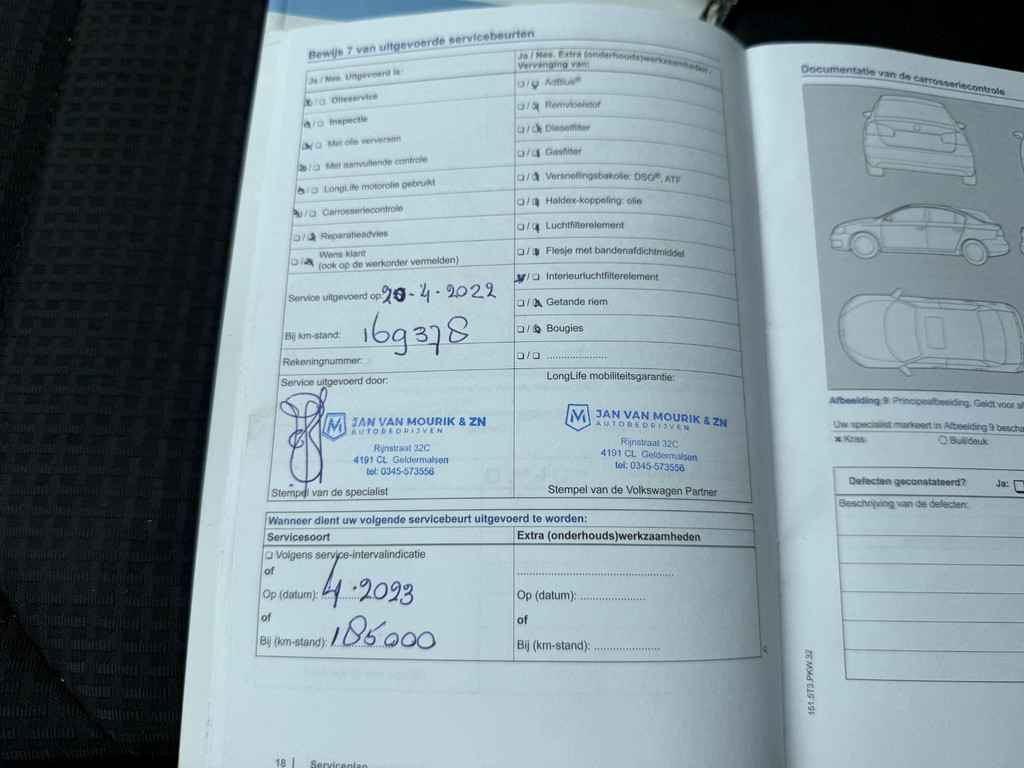 Bewijs 7 van uitgevoerde servicebeurten
Ja / Nee. Uitgevoerd is:
❏ / ❏ Olieservice
❏ / ❏ Inspectie
❏ / ❏ Met olie verversen
❏ / ❏ Met aanvullende controle
❏ / ❏ LongLife motorolie gebruikt
❏ / ❏ Carrosseriecontrole
❏ / ❏ Reparatieadvies
❏ / ❏ Wens klant
(ook op de werkorder vermelden)
Service uitgevoerd op: 20-4-2022
Bij km-stand: 169378
Rekeningnummer:
Ja / Nee. Extra (onderhouds)werkzaamheden.
Vervanging van:
❏ / ❏ AdBlue®
❏ / ❏ Remvloeistof
❏ / ❏ Dieselfilter
❏ / ❏ Gasfilter
❏ / ❏ Versnellingsbakolie: DSG®, ATF
❏ / ❏ Haldex-koppeling: olie
❏ / ❏ Luchtfilterelement
❏ / ❏ Flesje met bandenafdichtmiddel
❏ / ❏ Interieurluchtfilterelement
❏ / ❏ Getande riem
❏ / ❏ Bougies
❏ / ❏ .....................
Service uitgevoerd door:
JAN VAN MOURIK & ZN
AUTOBEDRIJVEN
Rijnstraat 32C
4191 CL Geldermalsen
tel: 0345-573556
Stempel van de specialist
LongLife mobiliteitsgarantie:
JAN VAN MOURIK & ZN
AUTOBEDRIJVEN
Rijnstraat 32C
4191 CL Geldermalsen
tel: 0345-573556
Stempel van de Volkswagen Partner
Wanneer dient uw volgende servicebeurt uitgevoerd te worden:
Servicesoort
❏ Volgens service-intervalindicatie
of
Op (datum): 4.2023
of
Bij (km-stand): 185000
Extra (onderhouds)werkzaamheden
.....................................................
Op (datum): .....................
of
Bij (km-stand): .....................
18 | Serviceplan
Documentatie van de carrosseriecontrole
Afbeelding 9 Principeafbeelding. Geldt voor
Uw specialist markeert in Afbeelding 9
Kras
Buil/deuk
Defecten geconstateerd? Ja: ❏
Beschrijving van de defecten:
151.5T3.PKW.32